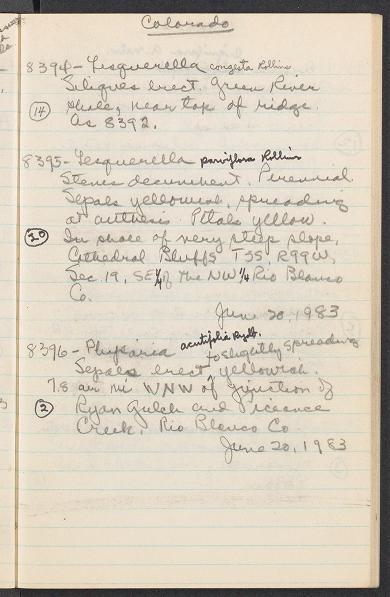 Colorado
8394 - Lesquerella congesta Rollins
Siliques erect. Green River
(14) shale, near top of ridge.
As 8392.
8395 - Lesquerella parviflora Rollins
Stems decumbent. Perennial
Sepals yellowish, spreading
at anthesis. Petals yellow.
(20) In shale of very steep slope,
Cathedral Bluffs T3S, R99W,
Sec. 19, SE¼ of the NW ¼ Rio Blanco
Co.
June 20, 1983
8396 - Physaria acutifolia Rydb.
to slightly spreading
Sepals erect yellowish.
7.8 air mi WNW of junction of
(2) Ryan Gulch and Piceance
Creek, Rio Blanco Co.
June 20, 1983